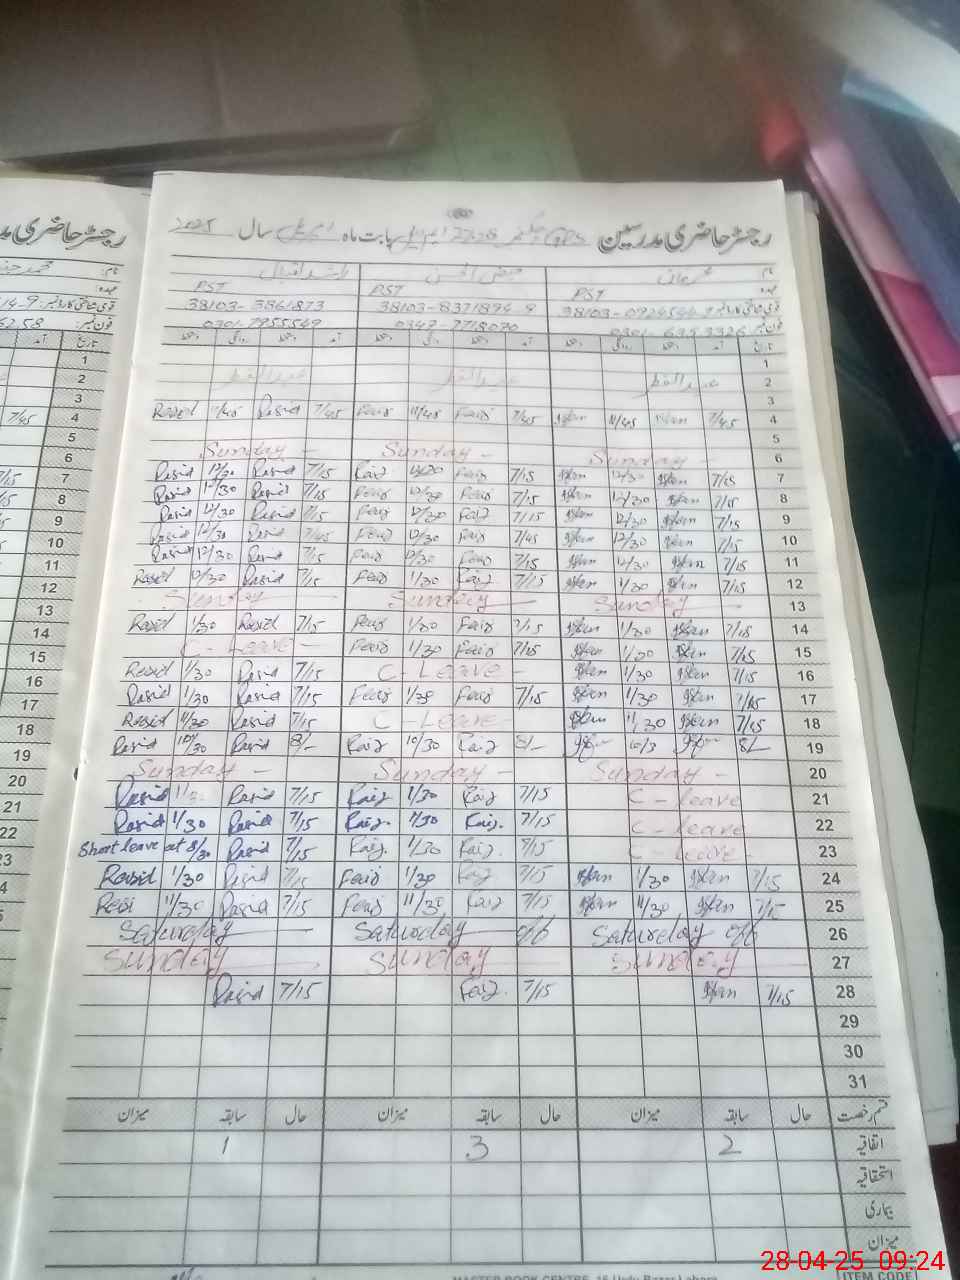 رجسٹر حاضری مدرسین GPS بابت ماہ اپریل سال 2025
رجسٹر حاضری مد
نام:
عہدہ: PST PST PST
38103-0924544-9 38103-8371894-9 38103-3861873
فون نمبر: 0301-6353326 0347-7718070 0301-7955549
تاریخ آمد دستخط روانگی دستخط آمد دستخط روانگی دستخط آمد دستخط روانگی دستخط
1
2 عیدالفطر عیدالفطر عیدالفطر
3
Rasid 11/45 Rasid 7/45 Faiz 11/45 Faiz 7/45 Irfan 11/45 Irfan 7/45 4
5
Sunday - Sunday - Sunday - 6
Rasid 12/30 Rasid 7/15 Faiz 12/30 Faiz 7/15 Irfan 12/30 Irfan 7/15 7
Rasid 12/30 Rasid 7/15 Faiz 12/30 Faiz 7/15 Irfan 12/30 Irfan 7/15 8
Rasid 12/30 Rasid 7/15 Faiz 12/30 Faiz 7/15 Irfan 12/30 Irfan 7/15 9
Rasid 12/30 Rasid 7/45 Faiz 12/30 Faiz 7/45 Irfan 12/30 Irfan 7/15 10
Rasid 12/30 Rasid 7/15 Faiz 12/30 Faiz 7/15 Irfan 12/30 Irfan 7/15 11
Rasid 12/30 Rasid 7/15 Faiz 1/30 Faiz 7/15 Irfan 1/30 Irfan 7/15 12
Sunday Sunday Sunday 13
Rasid 1/30 Rasid 7/15 Faiz 1/30 Faiz 7/15 Irfan 1/30 Irfan 7/15 14
C - Leave - Faiz 1/30 Faiz 7/15 Irfan 1/30 Irfan 7/15 15
Rasid 1/30 Rasid 7/15 C - Leave - Irfan 1/30 Irfan 7/15 16
Rasid 1/30 Rasid 7/15 Faiz 1/30 Faiz 7/15 Irfan 1/30 Irfan 7/15 17
Rasid 11/30 Rasid 7/15 C - Leave - Irfan 11/30 Irfan 7/15 18
Rasid 10/30 Rasid 8/- Faiz 10/30 Faiz 8/- Irfan 10/3 Irfan 8/- 19
Sunday - Sunday - Sunday - 20
Rasid 1/30 Rasid 7/15 Faiz 1/30 Faiz 7/15 C - leave 21
Rasid 1/30 Rasid 7/15 Faiz. 1/30 Faiz. 7/15 C - leave 22
Short leave at 8/30 Rasid 7/15 Faiz. 1/30 Faiz. 7/15 C - leave - 23
Rasid 1/30 Rasid 7/15 Faiz 1/30 Faiz 7/15 Irfan 1/30 Irfan 7/15 24
Rasi 11/30 Rasid 7/15 Faiz 11/30 Faiz 7/15 Irfan 11/30 Irfan 7/15 25
Saturday - Saturday off Saturday off 26
Sunday Sunday Sunday 27
Rasid 7/15 Faiz. 7/15 Irfan 7/15 28
29
30
31
قسم رخصت حال سابقہ میزان حال سابقہ میزان حال سابقہ میزان
اتفاقیہ 2 3 1
استحقاقیہ
بیماری
میزان
MASTER BOOK CENTRE, 15-Urdu Bazar Lahore
ITEM CODE
28-04-25 09:24